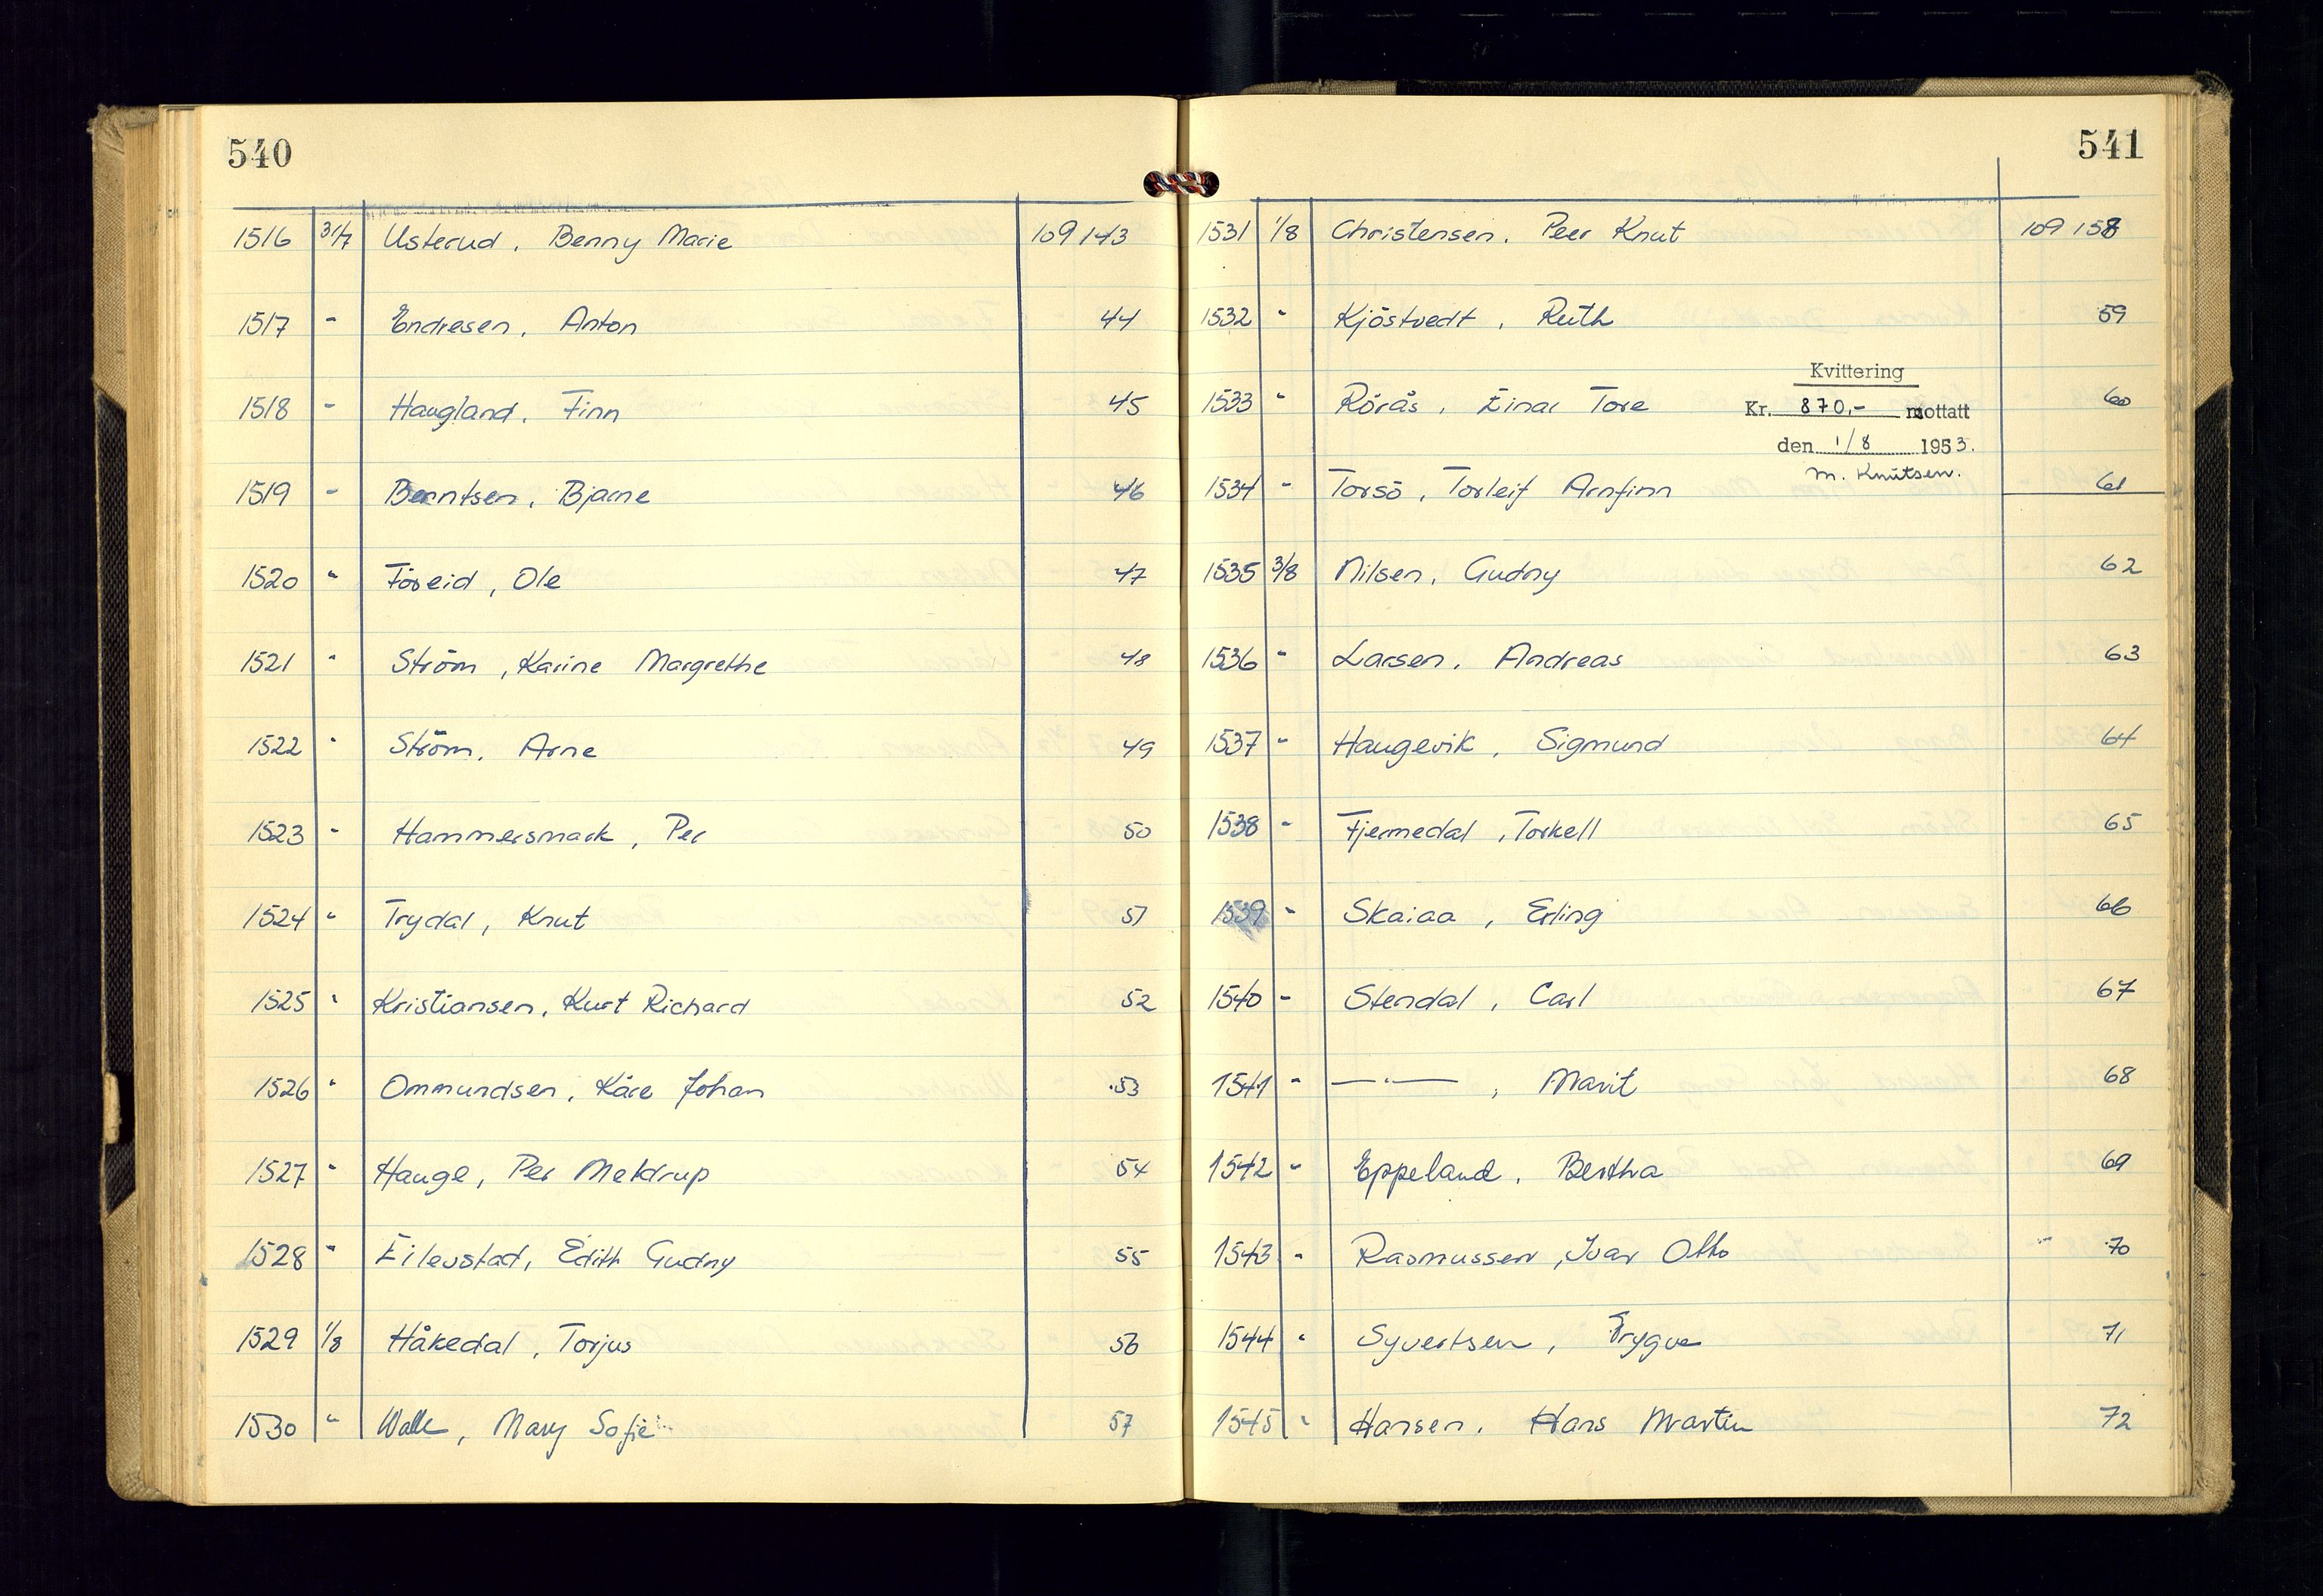 540
1516 31/7 Usterud, Benny Marie 109 143
1517 - Endresen, Anton 44
1518 - Haugland, Finn 45
1519 - Berntsen, Bjarne 46
1520 " Föreid, Ole 47
1521 " Ström, Karine Margrethe 48
1522 " Ström, Arne 49
1523 - Hammersmark, Per 50
1524 " Trydal, Knut 51
1525 " Kristiansen, Kurt Richard 52
1526 " Ommundsen, Kåre Johan 53
1527 " Hauge, Per Meldrup 54
1528 " Eilevstad, Edith Gudny 55
1529 1/8 Håkedal, Torjus 56
1530 " Walle, Mary Sofie 57
541
1531 1/8 Christensen, Peer Knut 109 158
1532 " Kjöstvedt, Ruth 59
Kvittering
1533 " Rörås, Einar Tore 60
Kr. 870,- mottatt
den 1/8 1953.
m. Knutsen.
1534 - Torsö, Torleif Arnfinn 61
1535 3/8 Nilsen, Gudny 62
1536 - Larsen, Andreas 63
1537 - Haugevik, Sigmund 64
1538 - Fjermedal, Torkell 65
1539 - Skaiaa, Erling 66
1540 - Stendal, Carl 67
1541 - —"— , Marit 68
1542 " Eppeland, Bertha 69
1543 " Rasmussen, Ivar Otto 70
1544 " Syvertsen, Trygve 71
1545 " Hansen, Hans Martin 72